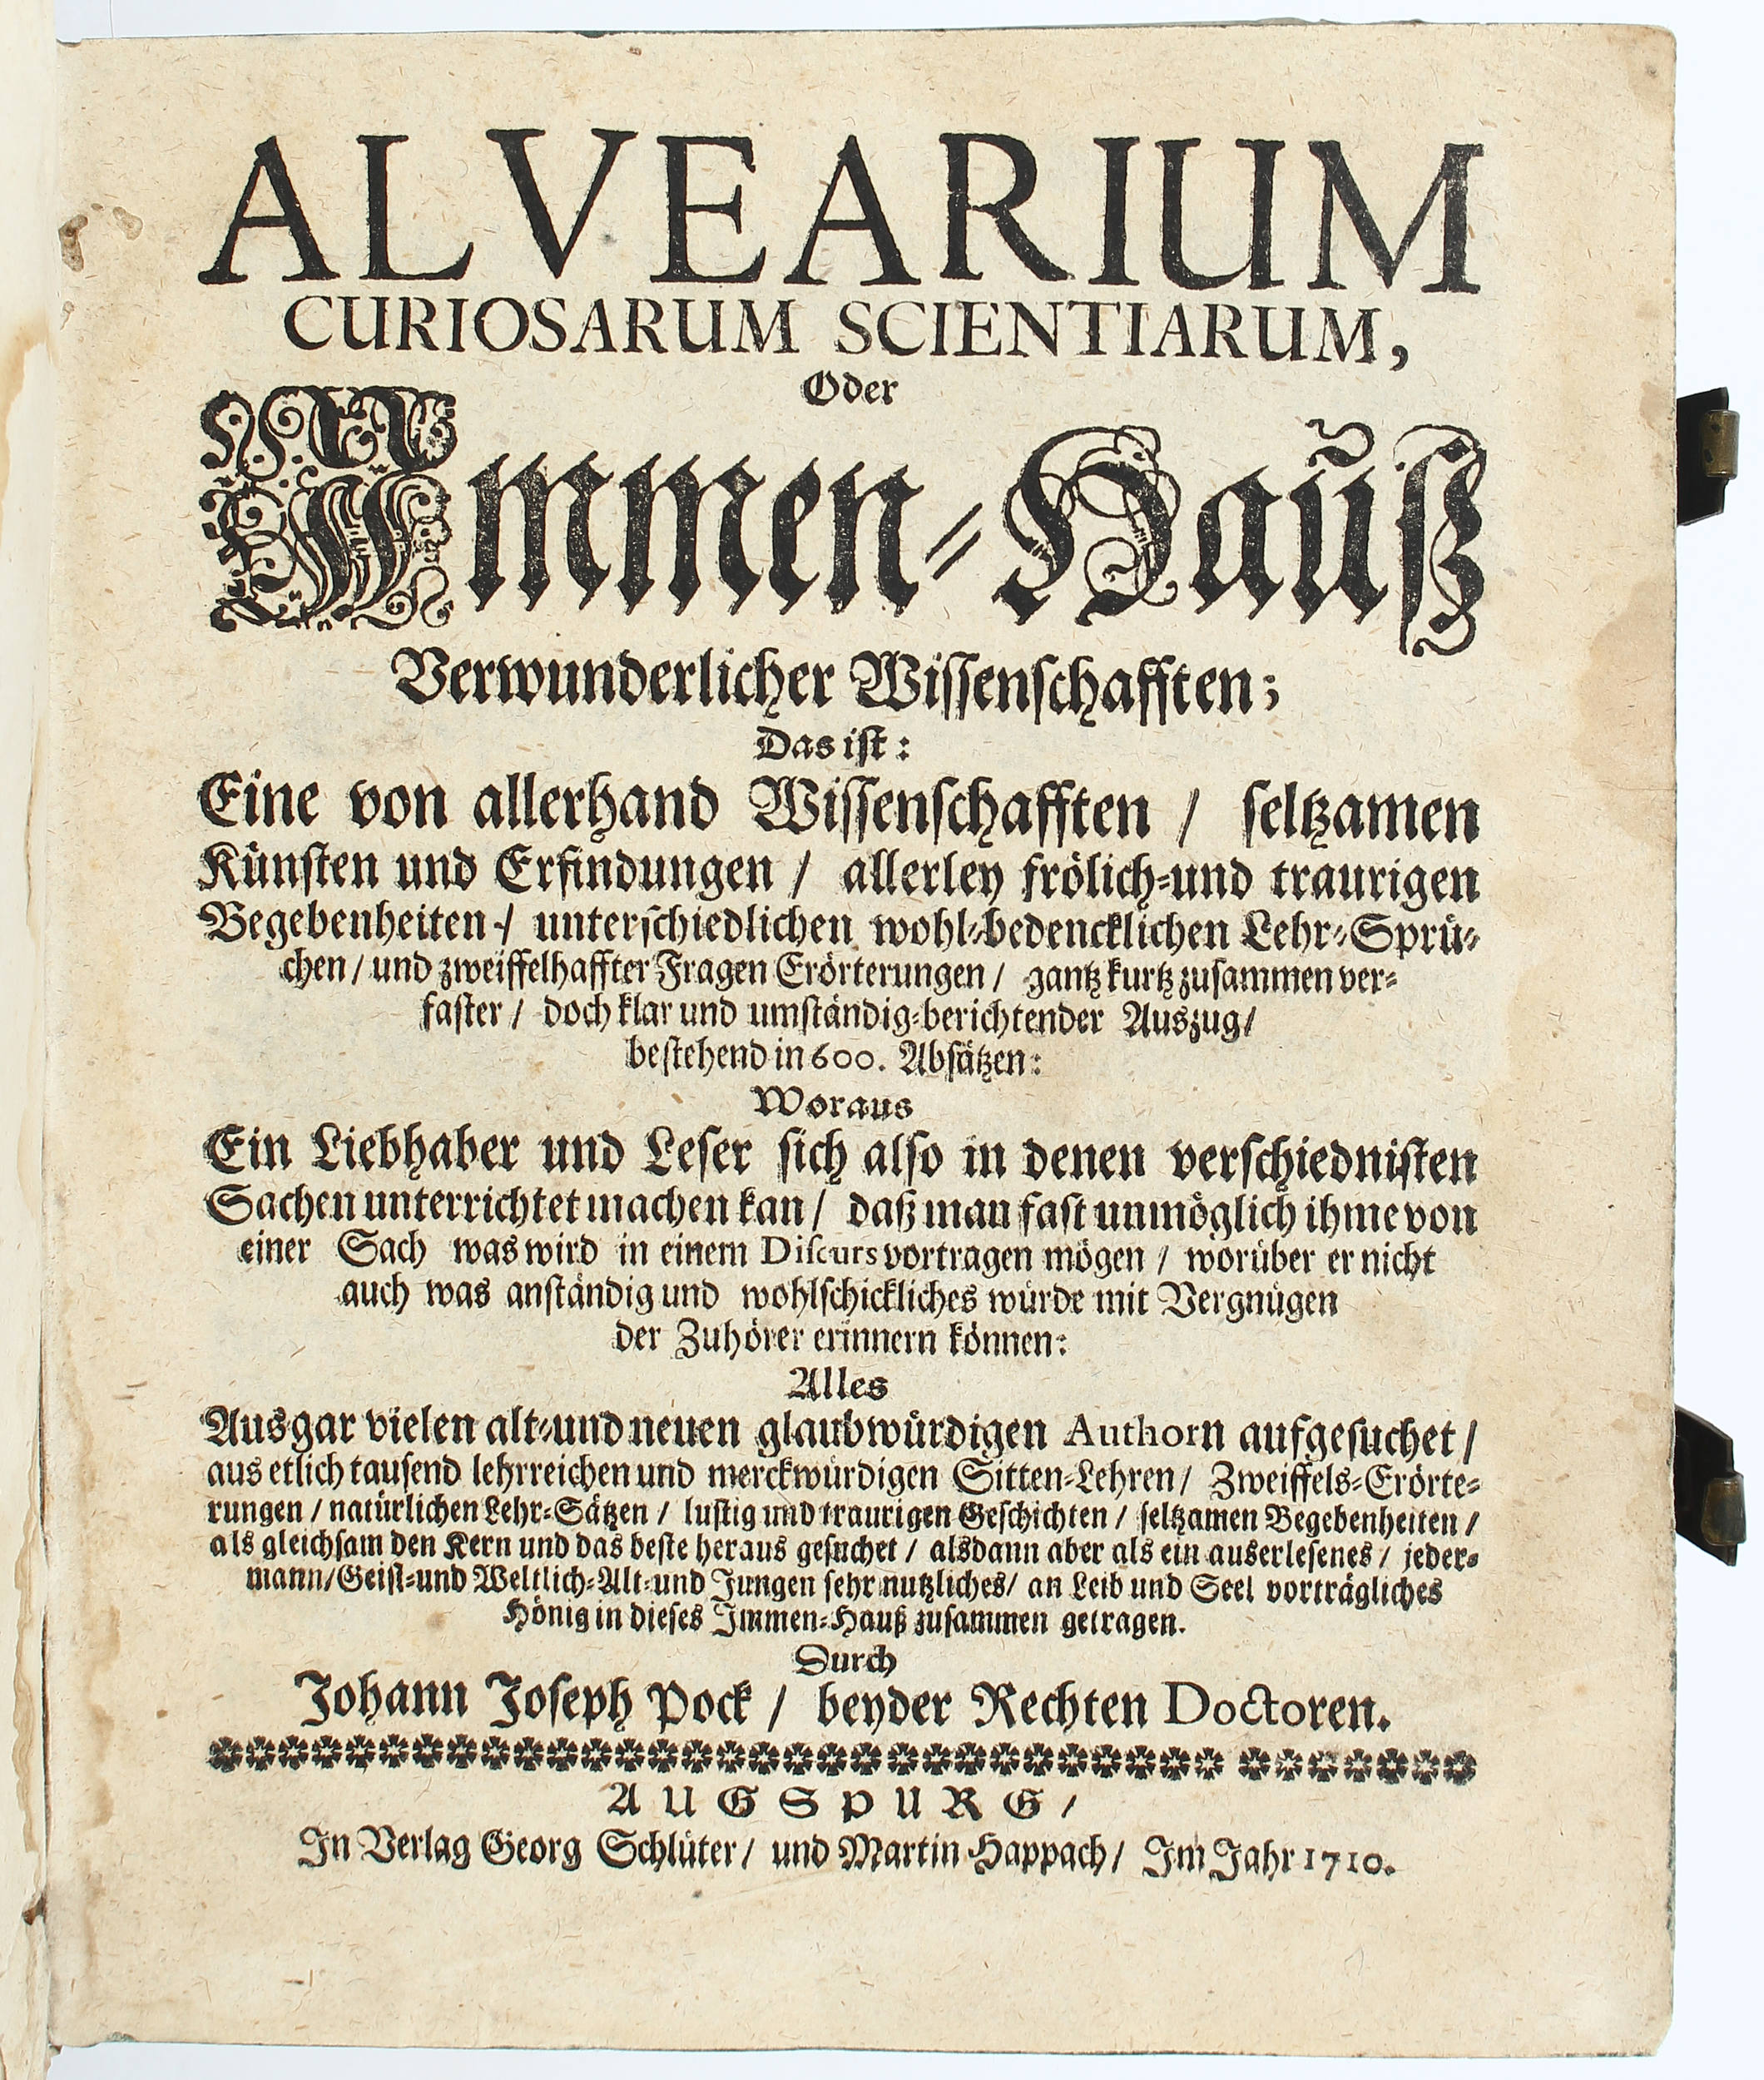 ALVEARIUM
CURIOSARUM SCIENTIARUM,
Oder
Immen-Hauß
Verwunderlicher Wissenschafften;
Das ist:
Eine von allerhand Wissenschafften / seltzamen
Künsten und Erfindungen / allerley frölich-und traurigen
Begebenheiten / unterschiedlichen wohl-bedencklichen Lehr-Sprü-
chen / und zweiffelhaffter Fragen Erörterungen / gantz kurtz zusammen ver-
faster / doch klar und umständig-berichtender Auszug /
bestehend in 600. Absätzen:
Woraus
Ein Liebhaber und Leser sich also in denen verschiednisten
Sachen unterrichtet machen kan / daß man fast unmöglich ihme von
einer Sach was wird in einem Discurs vortragen mögen / worüber er nicht
auch was anständig und wohlschickliches würde mit Vergnügen
der Zuhörer erinnern können:
Alles
Aus gar vielen alt-und neuen glaubwürdigen Authorn aufgesuchet /
aus etlich tausend lehrreichen und merckwürdigen Sitten-Lehren / Zweiffels-Erörte-
rungen / natürlichen Lehr-Sätzen / lustig und traurigen Geschichten / seltzamen Begebenheiten /
als gleichsam den Kern und das beste heraus gesuchet / alsdann aber als ein auserlesenes / jeder-
mann / Geist-und Weltlich-Alt-und Jungen sehr nutzliches / an Leib und Seel vorträgliches
Hönig in dieses Immen-Hauß zusammen getragen.
Durch
Johann Joseph Pock / beyder Rechten Doctoren.
AUGSPURG /
In Verlag Georg Schlüter / und Martin Happach / Im Jahr 1710.